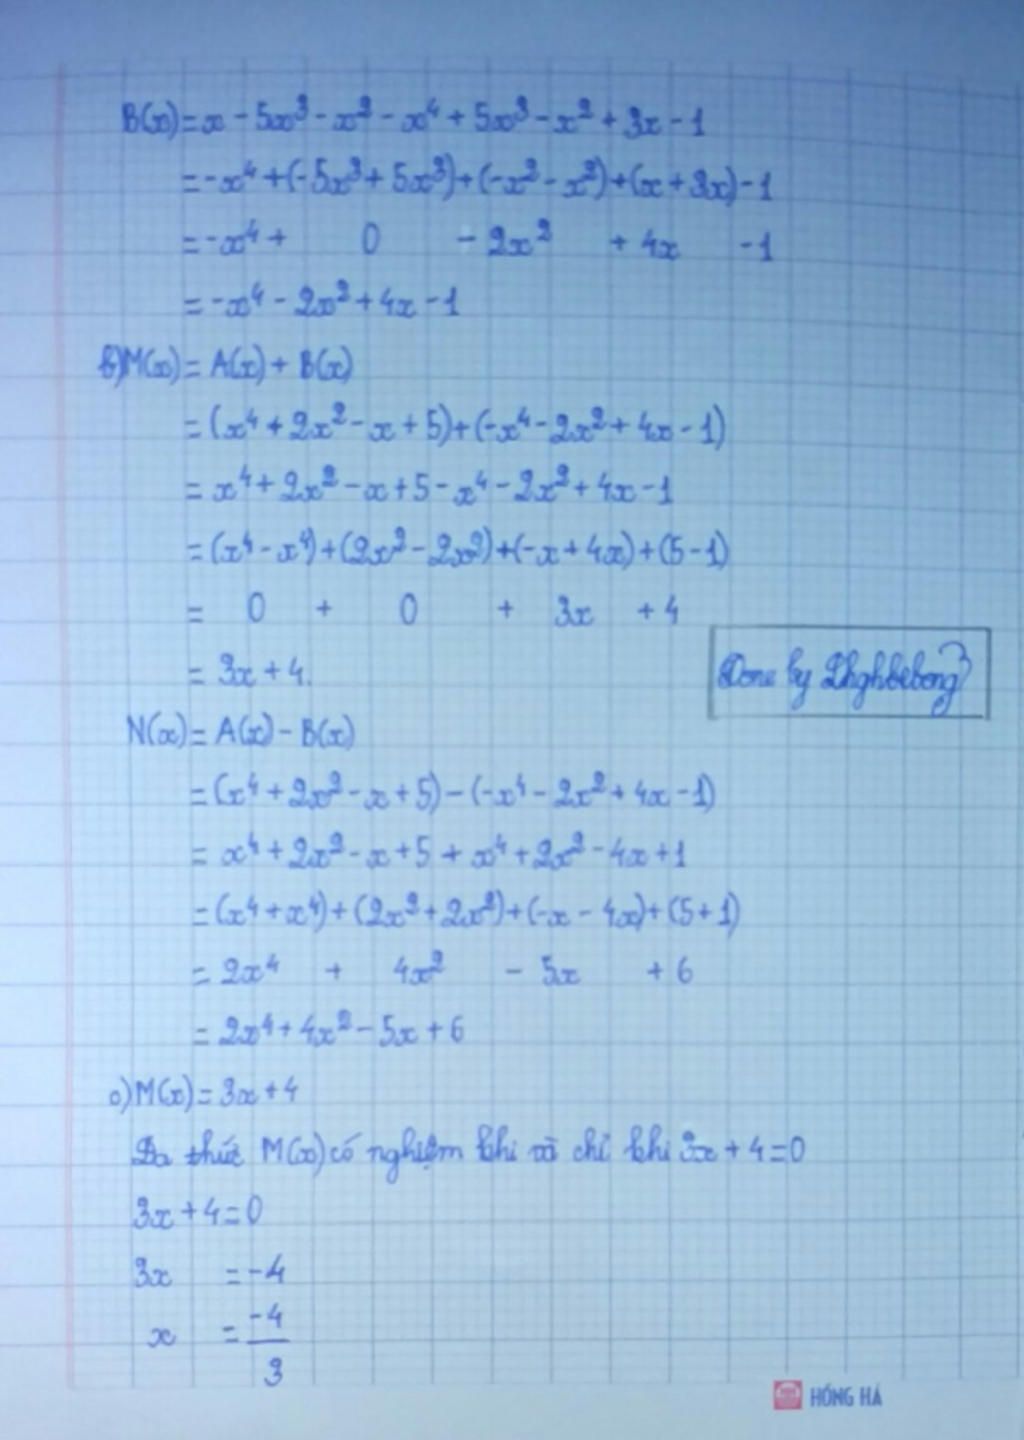 B(x) = x - 5x³ - x² - x⁴ + 5x³ - x² + 3x - 1
= -x⁴ + (-5x³ + 5x³) + (-x² - x²) + (x + 3x) - 1
= -x⁴ + 0 - 2x² + 4x - 1
= -x⁴ - 2x² + 4x - 1
b) M(x) = A(x) + B(x)
= (x⁴ + 2x² - x + 5) + (-x⁴ - 2x² + 4x - 1)
= x⁴ + 2x² - x + 5 - x⁴ - 2x² + 4x - 1
= (x⁴ - x⁴) + (2x² - 2x²) + (-x + 4x) + (5 - 1)
= 0 + 0 + 3x + 4
= 3x + 4.
Done by
N(x) = A(x) - B(x)
= (x⁴ + 2x² - x + 5) - (-x⁴ - 2x² + 4x - 1)
= x⁴ + 2x² - x + 5 + x⁴ + 2x² - 4x + 1
= (x⁴ + x⁴) + (2x² + 2x²) + (-x - 4x) + (5 + 1)
= 2x⁴ + 4x² - 5x + 6
= 2x⁴ + 4x² - 5x + 6
c) M(x) = 3x + 4
Đa thức M(x) có nghiệm khi và chỉ khi 3x + 4 = 0
3x + 4 = 0
3x = -4
x = -4/3
HỒNG HÀ